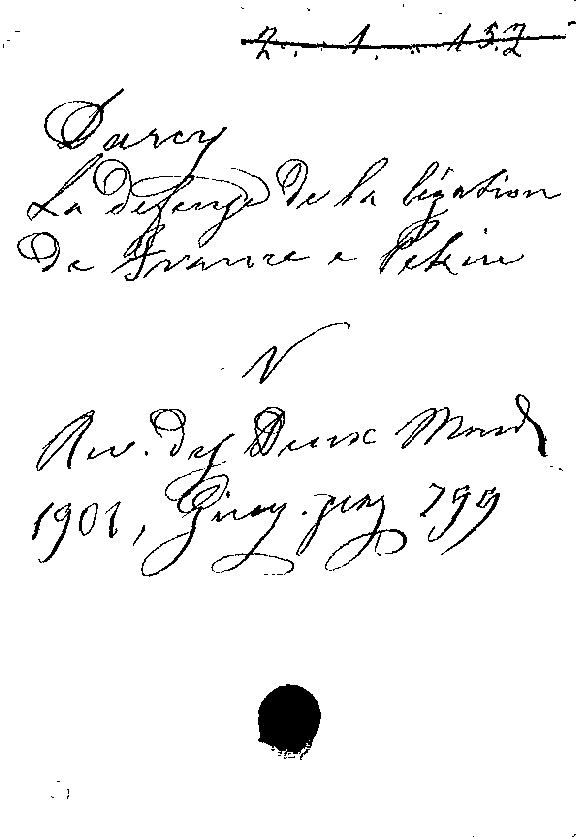 2. 1. 157
Darcy
La défense de la légation
de France e Pekin
V
Rev. des Deux Mond
1901, pag 799